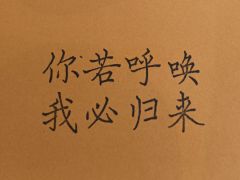 你若呼唤
我必归来